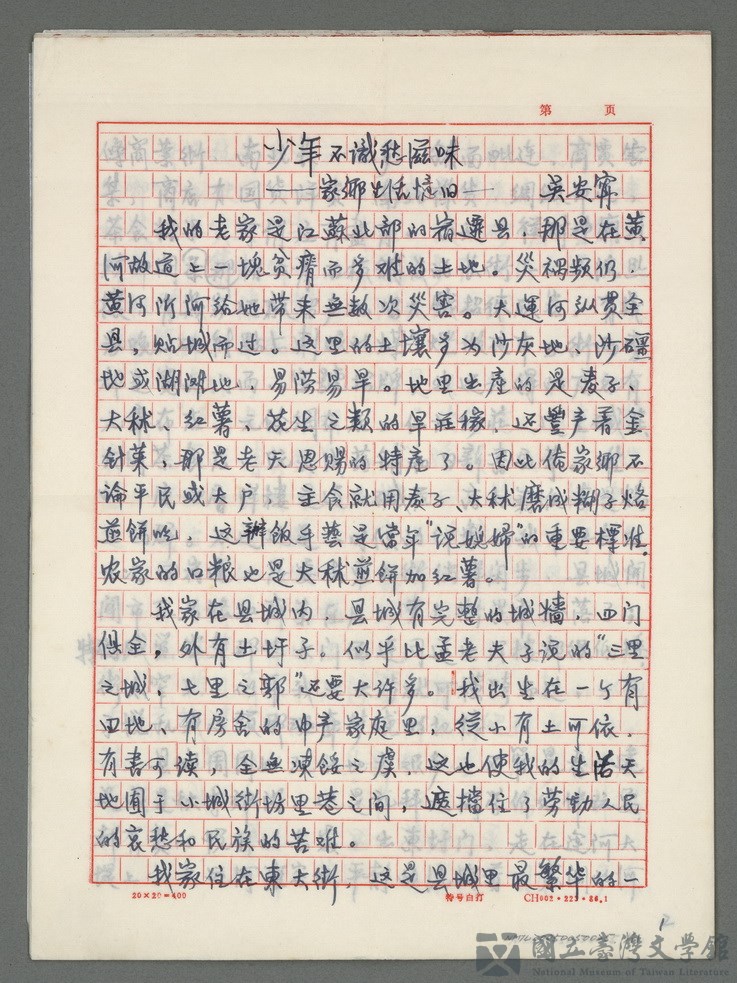 第　页
少年不識愁滋味
——家鄉生活憶旧——　吳安寧
我的老家是江蘇北部的宿遷县，那是在黄
河故道上一塊贫瘠而多难的土地。災禍頻仍，
黄河沂河給她带来無数次災害。大運河纵貫全
县，贴城而过。这里的土壤多为沙灰地、沙礓
地或湖滩地，易涝易旱。地里出產的是麦子、
大秫、红薯、花生之類的旱莊稼，还豐产着金
針菜，那是老天恩赐的特產了。因此俺家鄉不
論平民或大户，主食就用麦子、大秫磨成糊子烙
煎餅吃，这辦飯手藝是當年“说媳婦”的重要標准，
农家的口粮也是大秫煎餅加红薯。
我家在县城内，县城有完整的城墻，四门
俱全，外有土圩子。似乎比孟老夫子说的“三里
之城，七里之郭”还要大许多。我出生在一个有
田地、有房舍的中产家庭里，從小有土可依，
有書可读，全無凍餒之虞，这也使我的生活天
地囿于小城街坊里巷之间，遮擋住了劳動人民
的哀愁和民族的苦难。
我家住在東大街，这是县城里最繁华的一
20×20=400　CH002·227·86.1
國立臺灣文學館
National Museum of Taiwan Literature